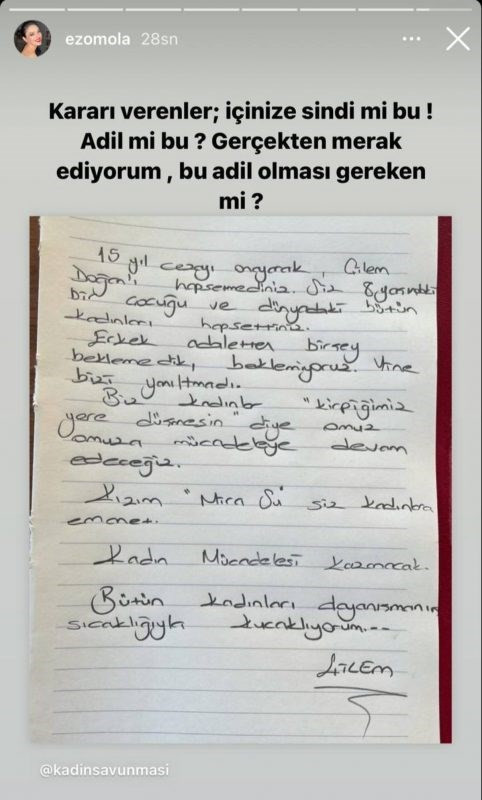 ezomola 28sn
Kararı verenler; içinize sindi mi bu !
Adil mi bu ? Gerçekten merak
ediyorum , bu adil olması gereken
mi ?
15 yıl cezayı onayarak, Çilem
Doğan'ı hapsemediniz. Siz 8 yaşındaki
bir çocuğu ve dünyadaki bütün
kadınları hapsettiniz.
Erkek adaletten birşey
beklemedik, beklemiyoruz. Yine
bizi yanıltmadı.
Biz kadınlar "kirpiğimiz
yere düşmesin" diye omuz
omuza mücadeleye devam
edeceğiz.
Kızım "Mira Su" siz kadınlara
emanet.
Kadın Mücadelesi kazanacak.
Bütün kadınları dayanışmanın
sıcaklığıyla kucaklıyorum...
ÇİLEM
@kadinsavunmasi